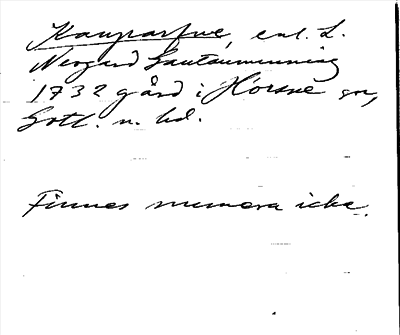 Kauparfve, enl. L.
Neogard Gautauminning
1732 gård i Hörsne sn,
Gotl. n. hd.
Finnes numera icke.